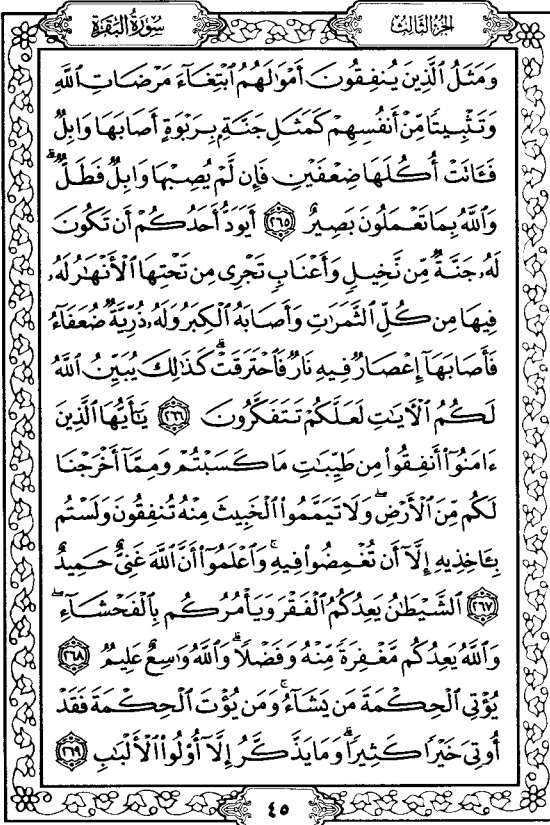 سورة البقرة
الجزء الثالث
وَمَثَلُ ٱلَّذِينَ يُنفِقُونَ أَمْوَٰلَهُمُ ٱبْتِغَآءَ مَرْضَاتِ ٱللَّهِ
وَتَثْبِيتًا مِّنْ أَنفُسِهِمْ كَمَثَلِ جَنَّةٍۭ بِرَبْوَةٍ أَصَابَهَا وَابِلٌ
فَـَٔاتَتْ أُكُلَهَا ضِعْفَيْنِ فَإِن لَّمْ يُصِبْهَا وَابِلٌ فَطَلٌّ ۗ
وَٱللَّهُ بِمَا تَعْمَلُونَ بَصِيرٌ ٢٦٥ أَيَوَدُّ أَحَدُكُمْ أَن تَكُونَ
لَهُۥ جَنَّةٌ مِّن نَّخِيلٍ وَأَعْنَابٍ تَجْرِى مِن تَحْتِهَا ٱلْأَنْهَٰرُ لَهُۥ
فِيهَا مِن كُلِّ ٱلثَّمَرَٰتِ وَأَصَابَهُ ٱلْكِبَرُ وَلَهُۥ ذُرِّيَّةٌ ضُعَفَآءُ
فَأَصَابَهَآ إِعْصَارٌ فِيهِ نَارٌ فَٱحْتَرَقَتْ ۗ كَذَٰلِكَ يُبَيِّنُ ٱللَّهُ
لَكُمُ ٱلْـَٔايَٰتِ لَعَلَّكُمْ تَتَفَكَّرُونَ ٢٦٦ يَٰٓأَيُّهَا ٱلَّذِينَ
ءَامَنُوٓا۟ أَنفِقُوا۟ مِن طَيِّبَٰتِ مَا كَسَبْتُمْ وَمِمَّآ أَخْرَجْنَا
لَكُم مِّنَ ٱلْأَرْضِ ۖ وَلَا تَيَمَّمُوا۟ ٱلْخَبِيثَ مِنْهُ تُنفِقُونَ وَلَسْتُم
بِـَٔاخِذِيهِ إِلَّآ أَن تُغْمِضُوا۟ فِيهِ ۚ وَٱعْلَمُوٓا۟ أَنَّ ٱللَّهَ غَنِىٌّ حَمِيدٌ
٢٦٧ ٱلشَّيْطَٰنُ يَعِدُكُمُ ٱلْفَقْرَ وَيَأْمُرُكُم بِٱلْفَحْشَآءِ ۖ
وَٱللَّهُ يَعِدُكُم مَّغْفِرَةً مِّنْهُ وَفَضْلًا ۗ وَٱللَّهُ وَٰسِعٌ عَلِيمٌ ٢٦٨
يُؤْتِى ٱلْحِكْمَةَ مَن يَشَآءُ ۚ وَمَن يُؤْتَ ٱلْحِكْمَةَ فَقَدْ
أُوتِىَ خَيْرًا كَثِيرًا ۗ وَمَا يَذَّكَّرُ إِلَّآ أُو۟لُوا۟ ٱلْأَلْبَٰبِ ٢٦٩
٤٥